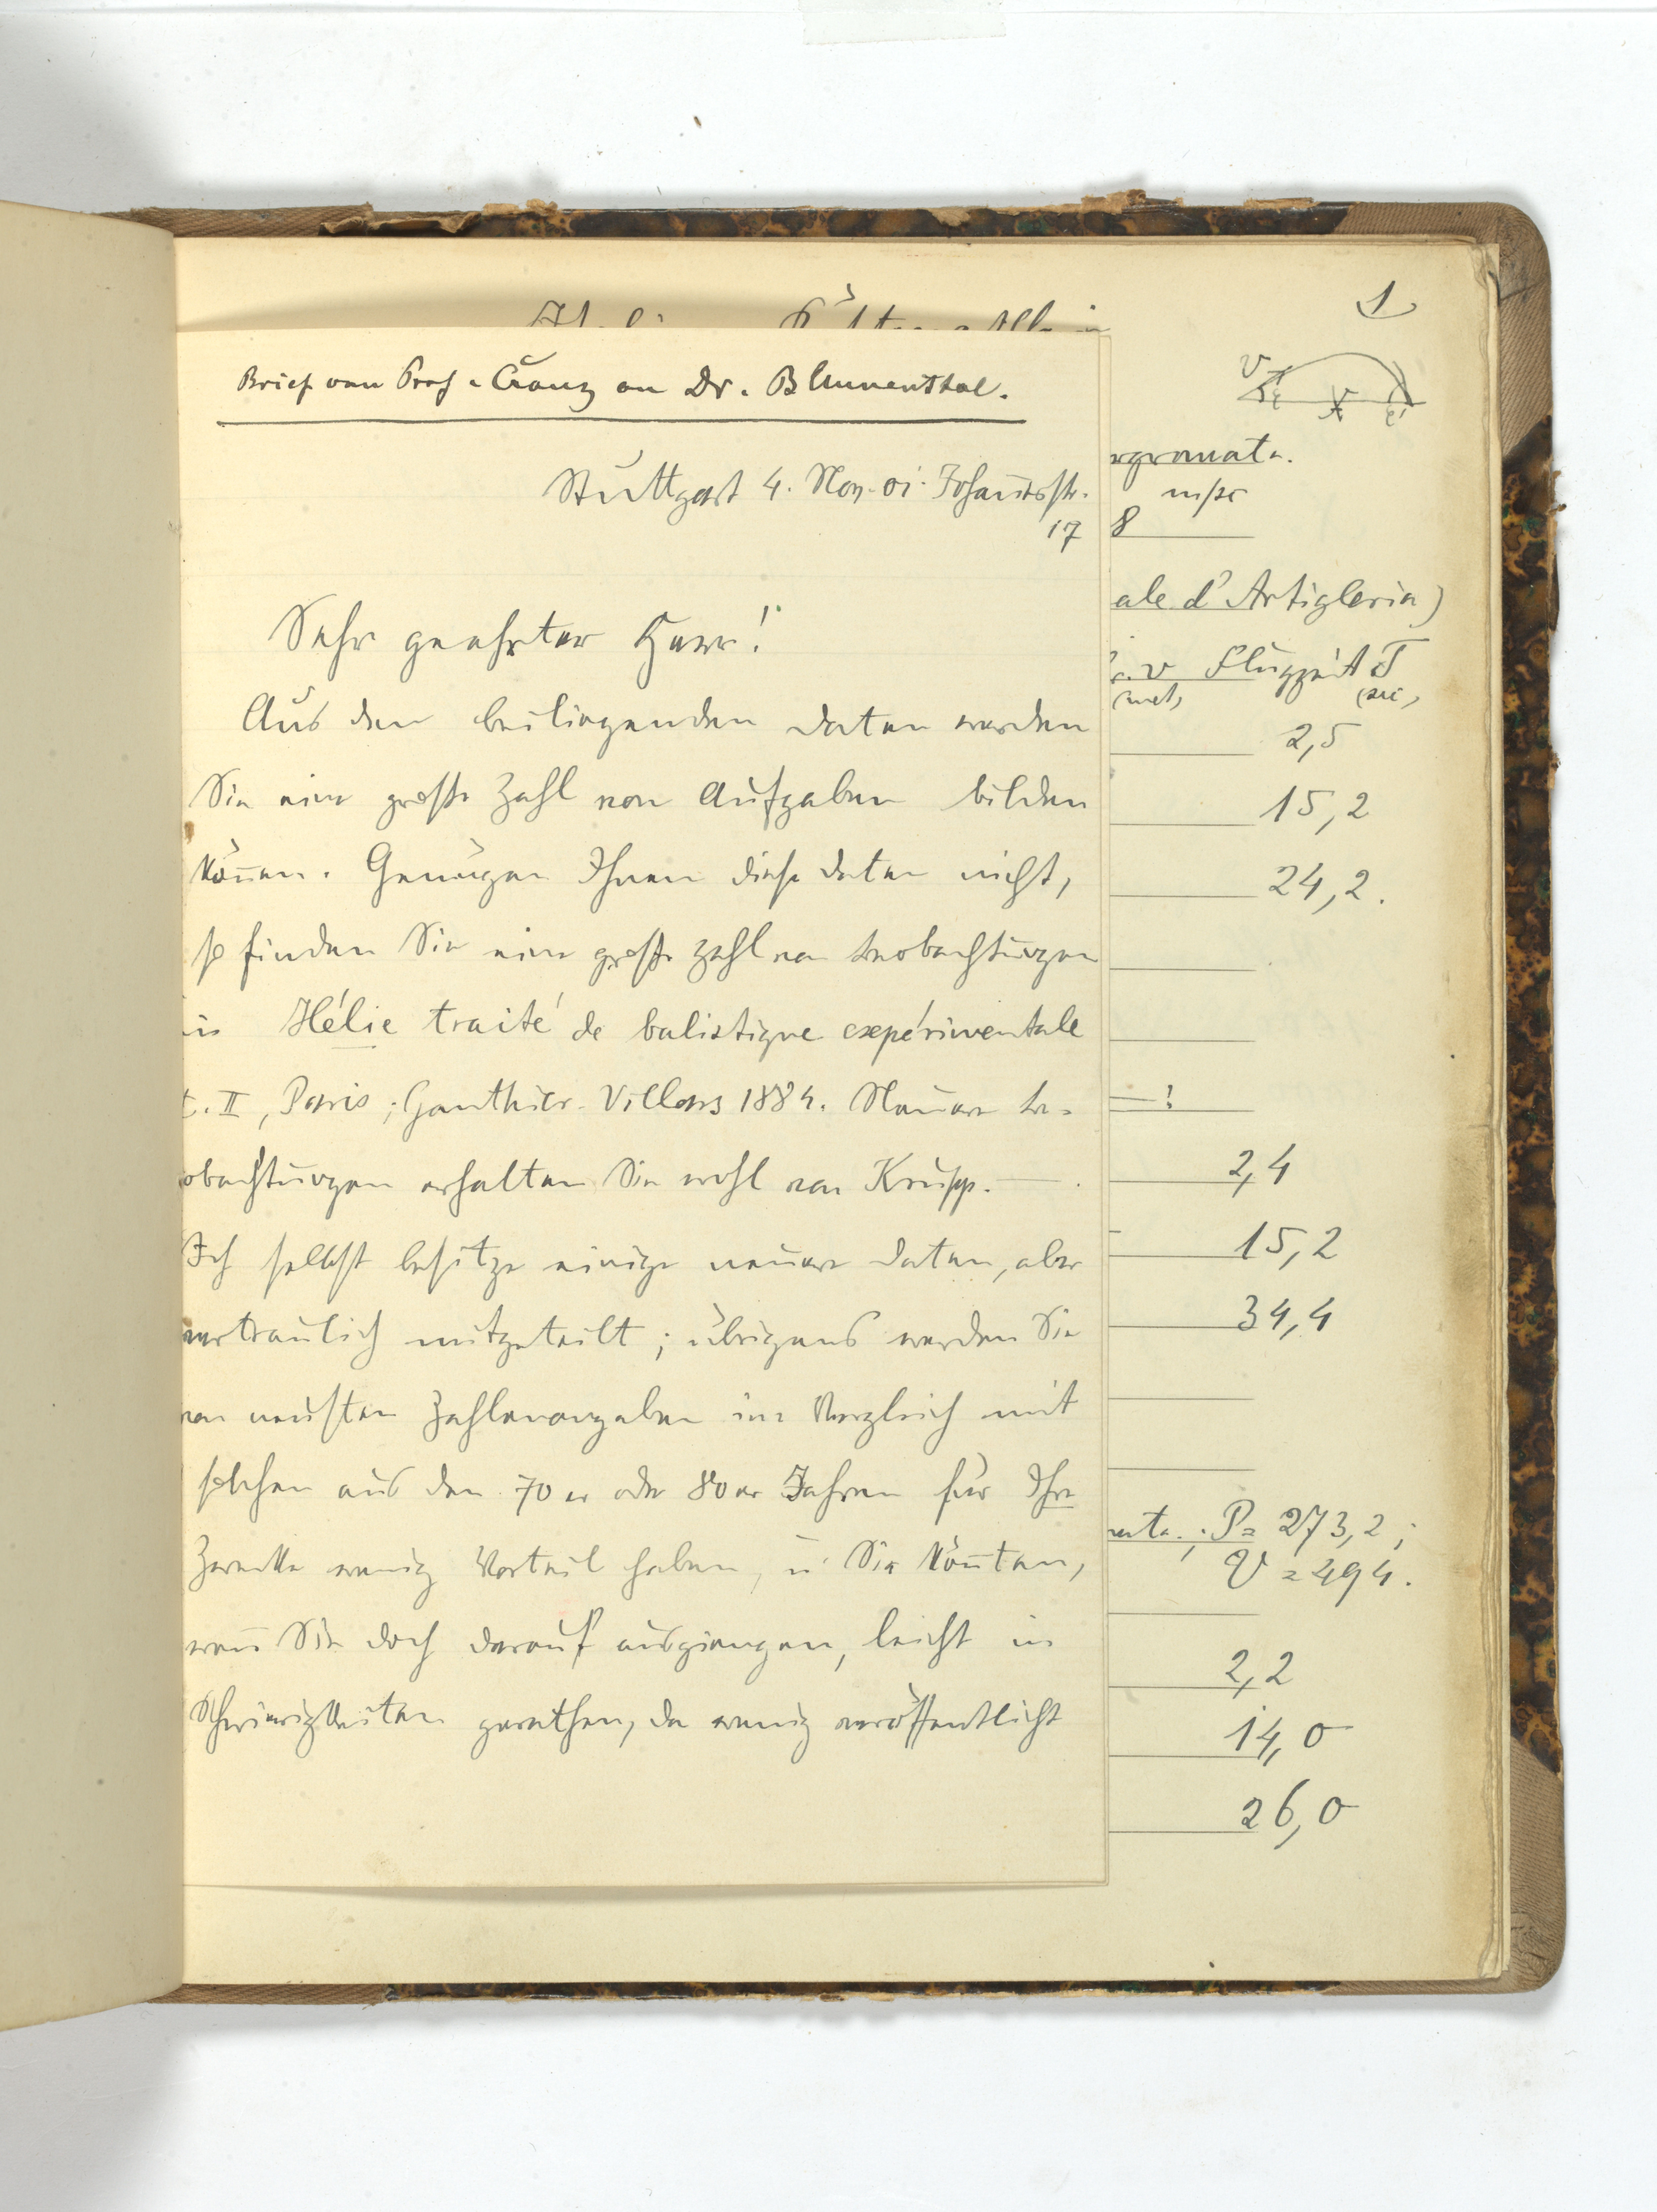 1
Brief von Prof. Cranz an Dr. Blumenthal.
Stuttgart 4. Nov. 01. Johannisstr.
17
Sehr geehrter Herr!
Aus den beiliegenden Daten werden
Sie eine große Zahl von Aufgaben bilden
können. Genügen Ihnen diese Daten nicht,
so finden Sie eine große Zahl von Beobachtungen
in Hélie traité de balistique expérimentale
t. II, Paris, Gauthier-Villars 1884. Neuere Be-
obachtungen erhalten Sie wohl von Krupp. —
Ich selbst besitze einige neuere Daten, aber
vertraulich mitgeteilt; übrigens werden Sie
von neusten Zahlenangaben im Vergleich mit
solchen aus den 70er oder 80er Jahren für Ihre
Zwecke wenig Vorteil haben, u. Sie könnten,
wenn Sie doch darauf ausgiengen, leicht in
Schwierigkeiten gerathen, da wenig veröffentlicht
V
X
rgranate.
m/sc
8
ale d'Artigleria)
v Flugzeit T
(met) (sec)
2,5
15,2
24,2.
— !
2,4
15,2
34,4
nate.; P = 273,2;
V = 494.
2,2
14,0
26,0